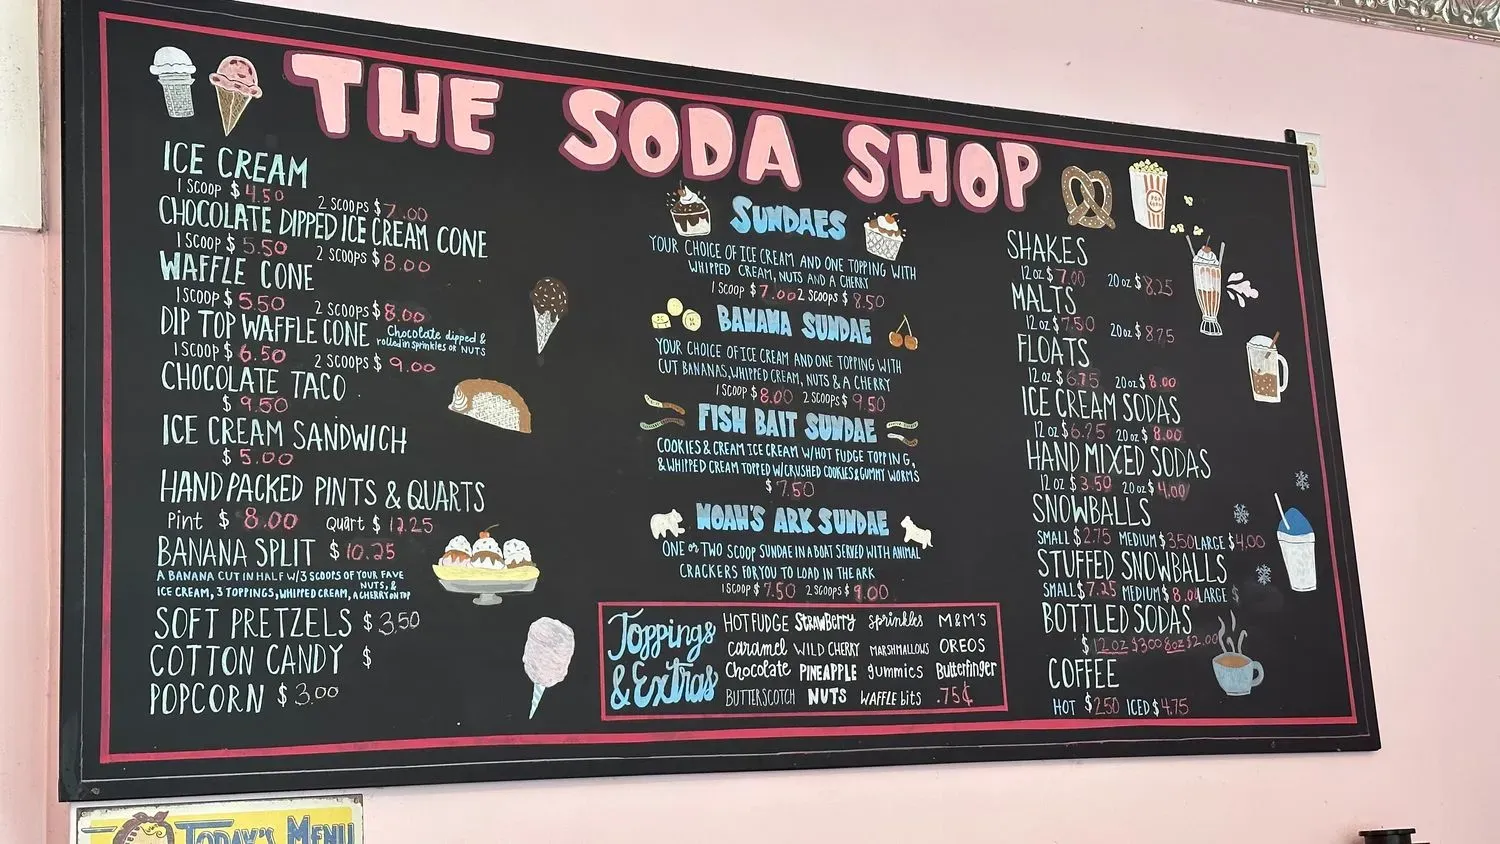 THE SODA SHOP
ICE CREAM
1 SCOOP $4.50 2 SCOOPS $7.00
CHOCOLATE DIPPED ICE CREAM CONE
1 SCOOP $5.50 2 SCOOPS $8.00
WAFFLE CONE
1 SCOOP $5.50 2 SCOOPS $8.00
DIP TOP WAFFLE CONE Chocolate dipped &
rolled in sprinkles or NUTS
1 SCOOP $6.50 2 SCOOPS $9.00
CHOCOLATE TACO
$9.50
ICE CREAM SANDWICH
$5.00
HAND PACKED PINTS & QUARTS
Pint $8.00 Quart $12.25
BANANA SPLIT $10.25
A BANANA CUT IN HALF W/3 SCOOPS OF YOUR FAVE
NUTS, &
ICE CREAM, 3 TOPPINGS, WHIPPED CREAM, A CHERRY ON TOP
SOFT PRETZELS $3.50
COTTON CANDY $
POPCORN $3.00
SUNDAES
YOUR CHOICE OF ICE CREAM AND ONE TOPPING WITH
WHIPPED CREAM, NUTS AND A CHERRY
1 SCOOP $7.00 2 SCOOPS $8.50
BANANA SUNDAE
YOUR CHOICE OF ICE CREAM AND ONE TOPPING WITH
CUT BANANAS, WHIPPED CREAM, NUTS & A CHERRY
1 SCOOP $8.00 2 SCOOPS $9.50
FISH BAIT SUNDAE
COOKIES & CREAM ICE CREAM W/HOT FUDGE TOPPING,
& WHIPPED CREAM TOPPED W/CRUSHED COOKIES & GUMMY WORMS
$7.50
NOAH'S ARK SUNDAE
ONE or TWO SCOOP SUNDAE IN A BOAT SERVED WITH ANIMAL
CRACKERS FOR YOU TO LOAD IN THE ARK
1 SCOOP $7.50 2 SCOOPS $9.00
Toppings
& Extras
HOT FUDGE STRAWBERRY sprinkles M&M'S
caramel WILD CHERRY MARSHMALLOWS OREOS
Chocolate PINEAPPLE gummies Butterfinger
BUTTERSCOTCH NUTS WAFFLE bits .75¢
POP CORN
SHAKES
12 oz $7.00 20 oz $8.25
MALTS
12 oz $7.50 20 oz $8.75
FLOATS
12 oz $6.75 20 oz $8.00
ICE CREAM SODAS
12 oz $6.75 20 oz $8.00
HAND MIXED SODAS
12 oz $3.50 20 oz $4.00
SNOWBALLS
SMALL $2.75 MEDIUM $3.50 LARGE $4.00
STUFFED SNOWBALLS
SMALL $7.25 MEDIUM $8.0 LARGE $
BOTTLED SODAS
$12oz $3.00 8oz $2.00
COFFEE
HOT $2.50 ICED $4.75
TODAY'S MENU